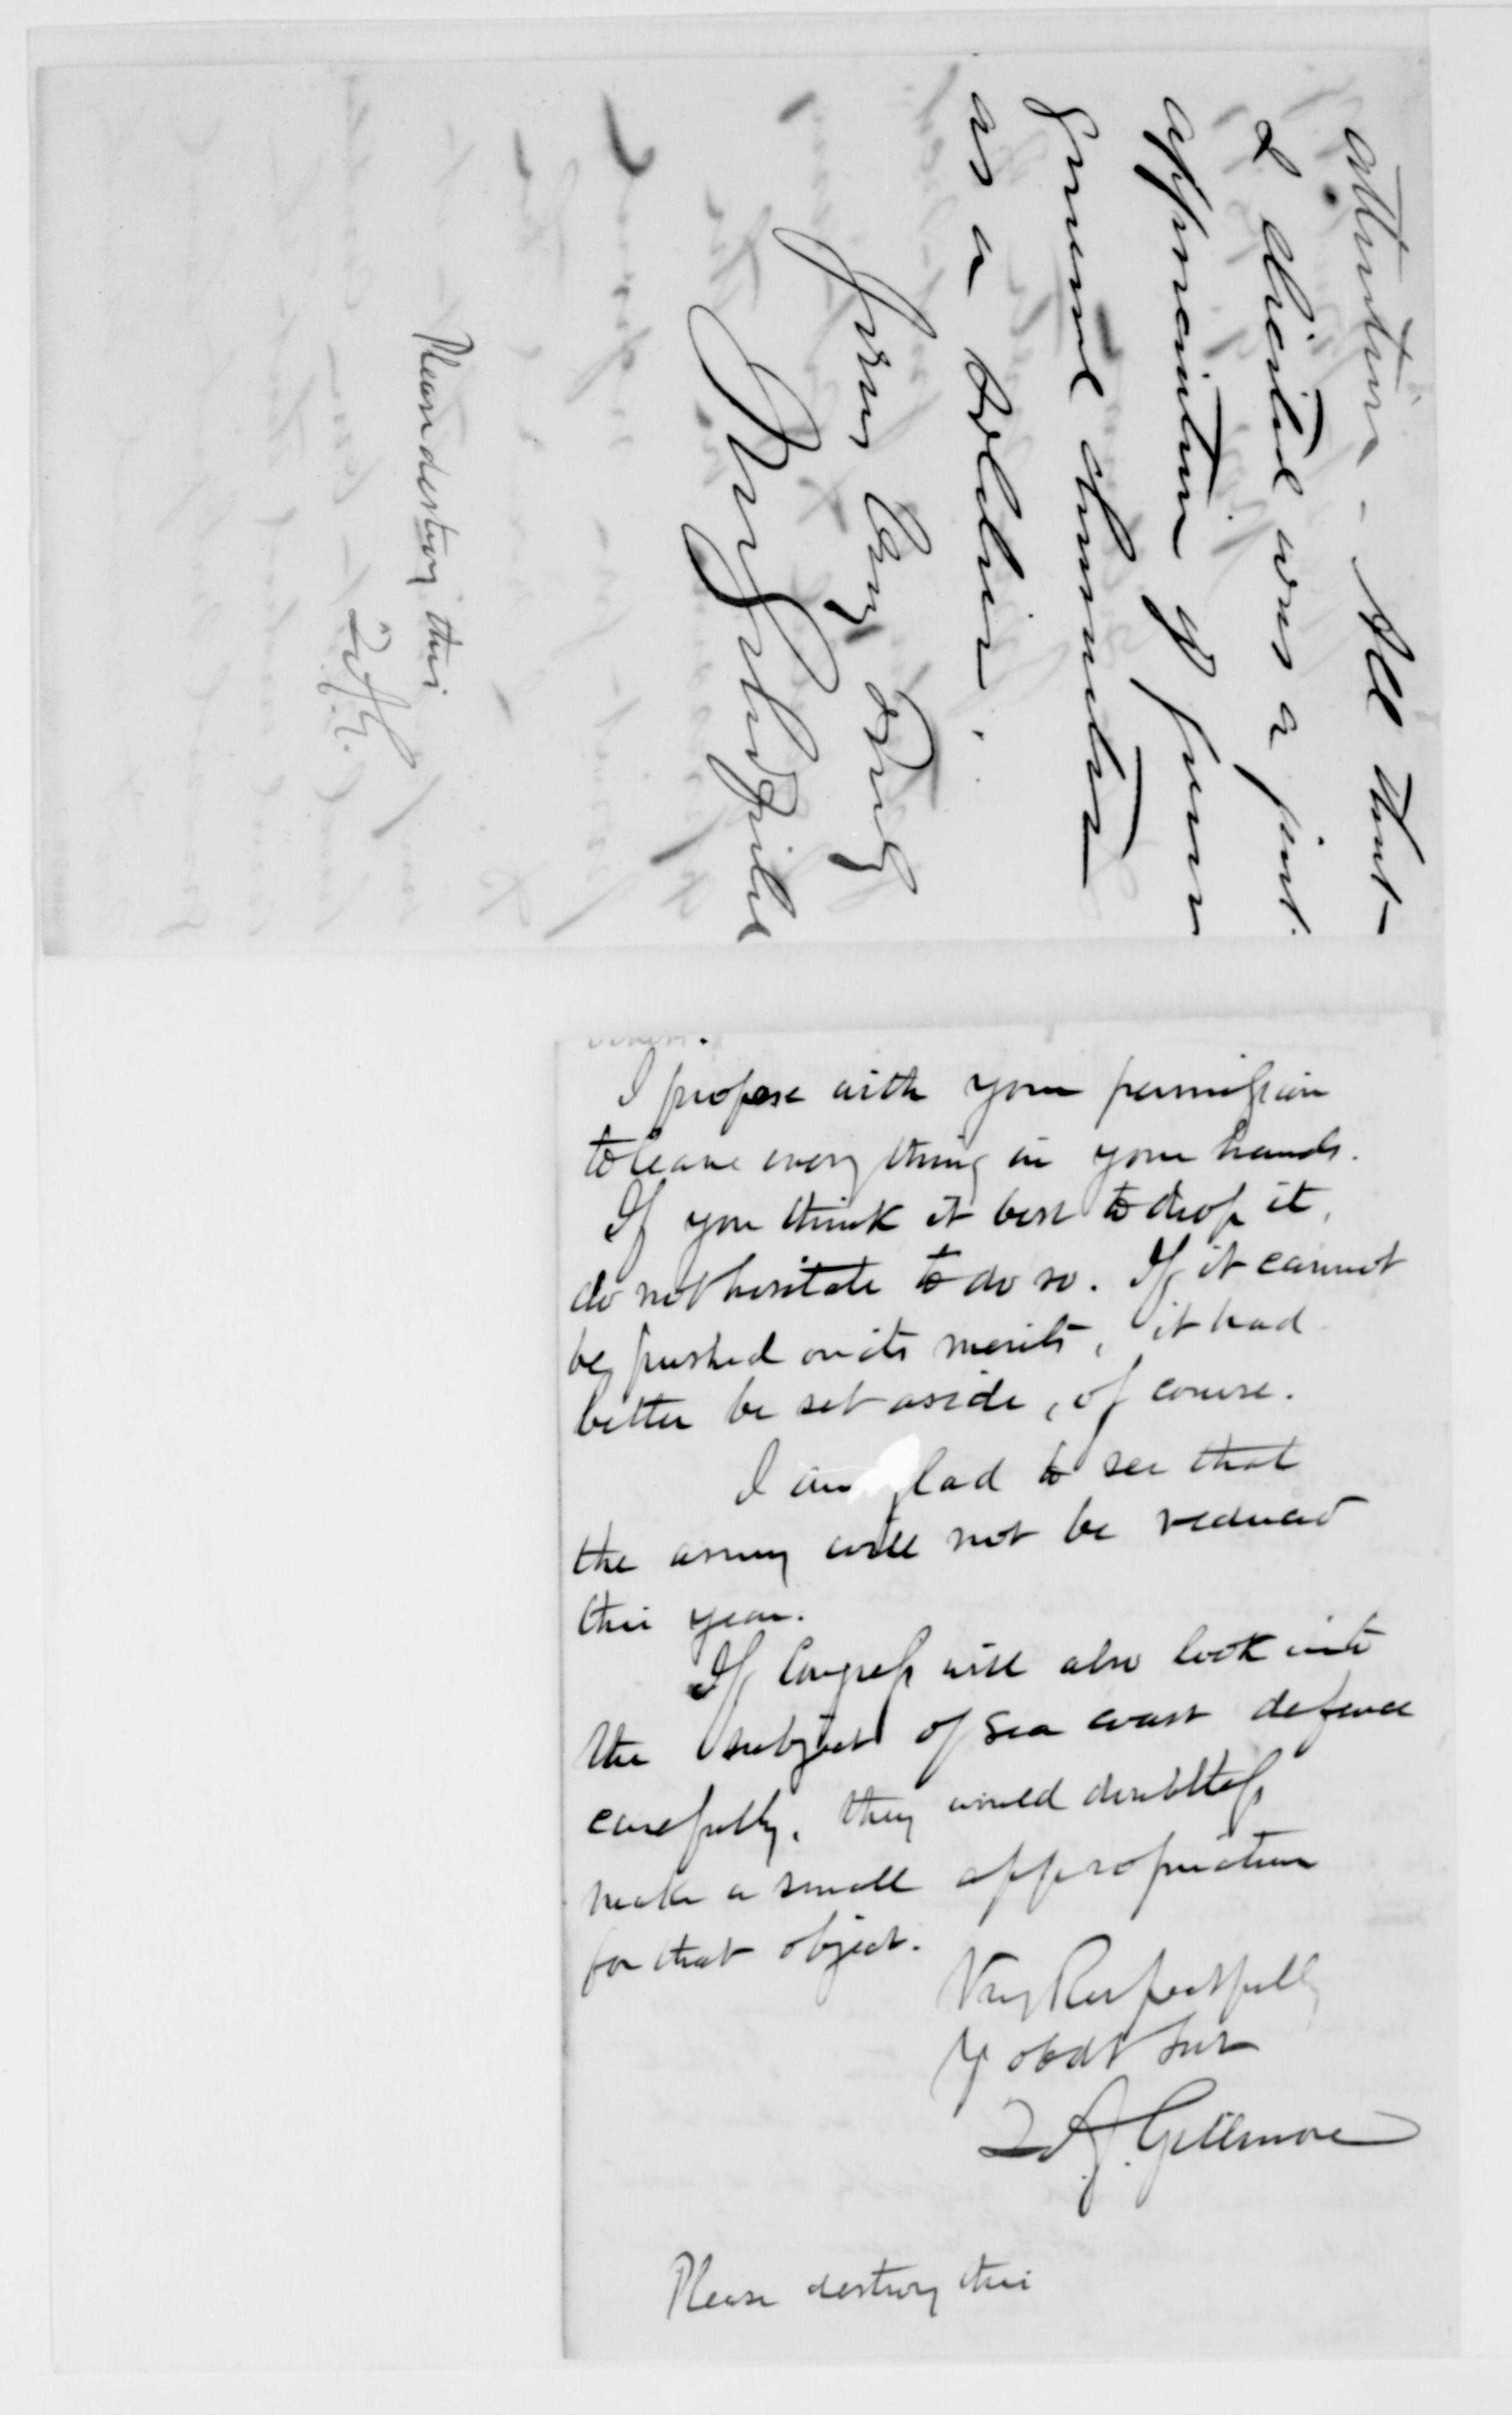 attention - All that
I desired was a just
appreciation of your
General character
as a Soldier.
Yours Very Truly
Please destroy this
Q.A.G.
I propose with your permission
to leave every thing in your hands.
If you think it best to drop it,
do not hesitate to do so. If it cannot
be pushed on its merits, it had
better be set aside, of course.
I am glad to see that
the army will not be reduced
this year.
If Congress will also look into
the subject of sea coast defence
carefully, they would doubtless
make a small appropriation
for that object.
Very Respectfully
Yr obdt Svt
Q A Gillmore
Please destroy this